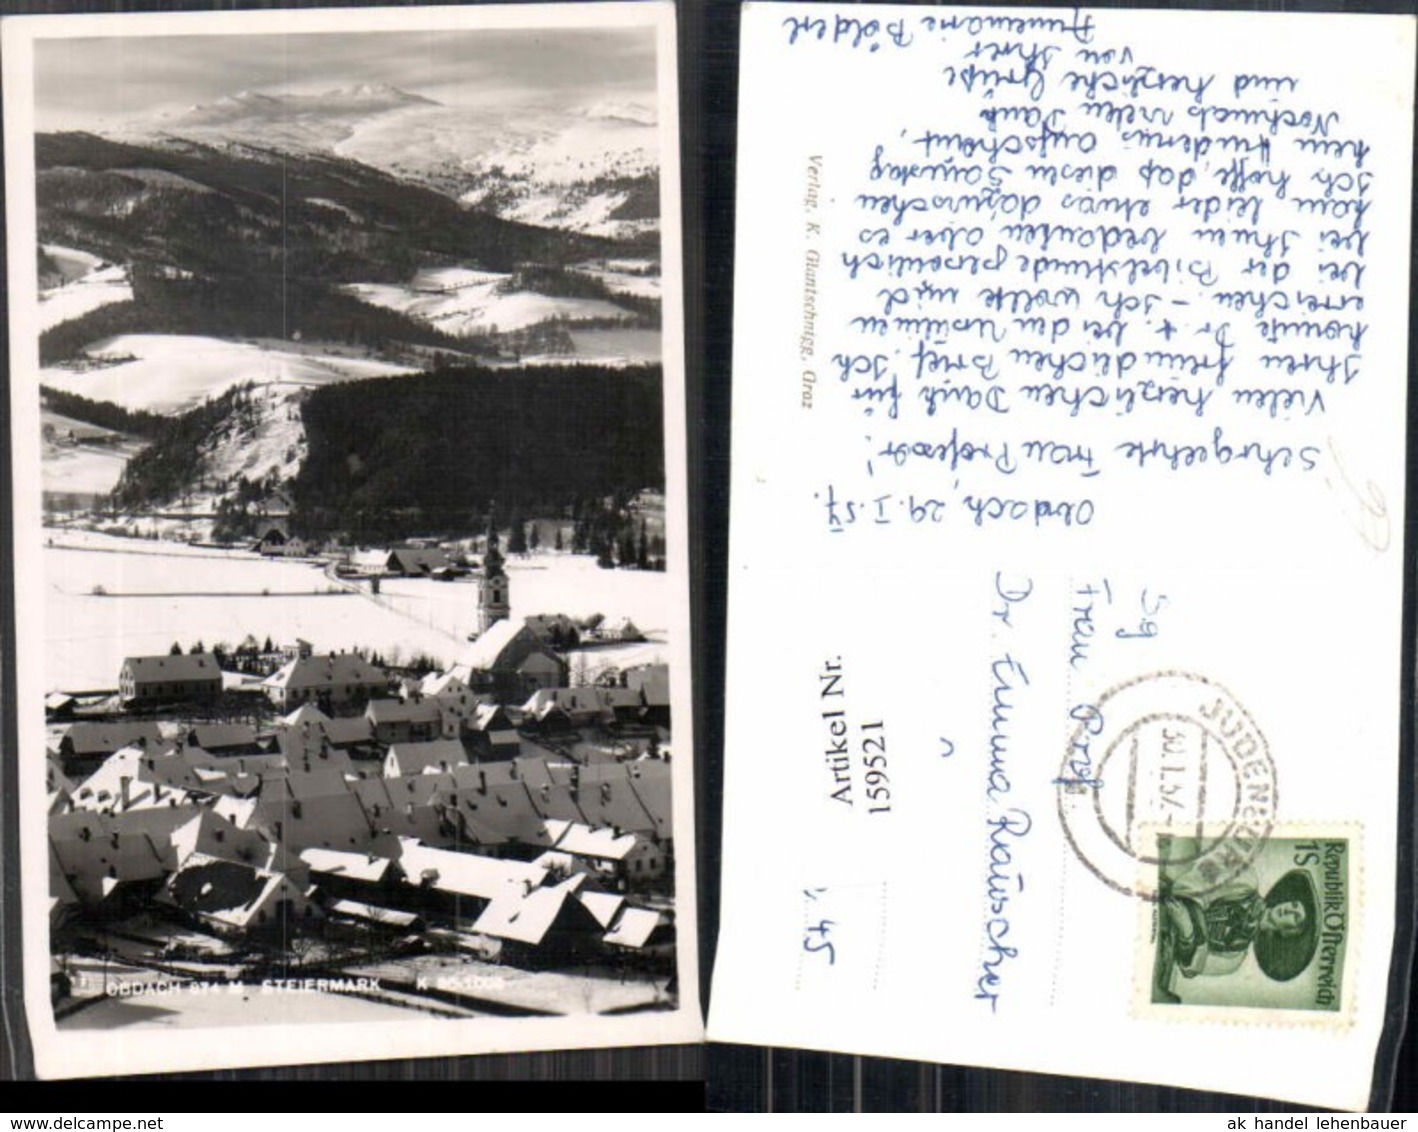 OBDACH 874 M STEIERMARK
Obdach, 29. I. 57.
Sehrgeehrte Frau Professor!
Vielen herzlichen Dank für
Ihren freundlichen Brief. Ich
konnte Dr. t. bei den Ursulinen
erreichen. – Ich wollte mich
bei der Bibelstunde persönlich
bei Ihnen bedanken aber es
kam leider etwas dazwischen
Ich hoffe, daß diesen Samstag
kein Hindernis aufscheint.
Nochmals vielen Dank
und herzliche Grüße
von Ihrer
Annemarie Pölderl
Verlag, K. Glantschnigg, Graz
Sg
Frau Prof.
Dr. Emma Rauscher
JUDENBURG
30.1.57
Republik Österreich
1S
Artikel Nr.
159521
45
ak handel lehenbauer